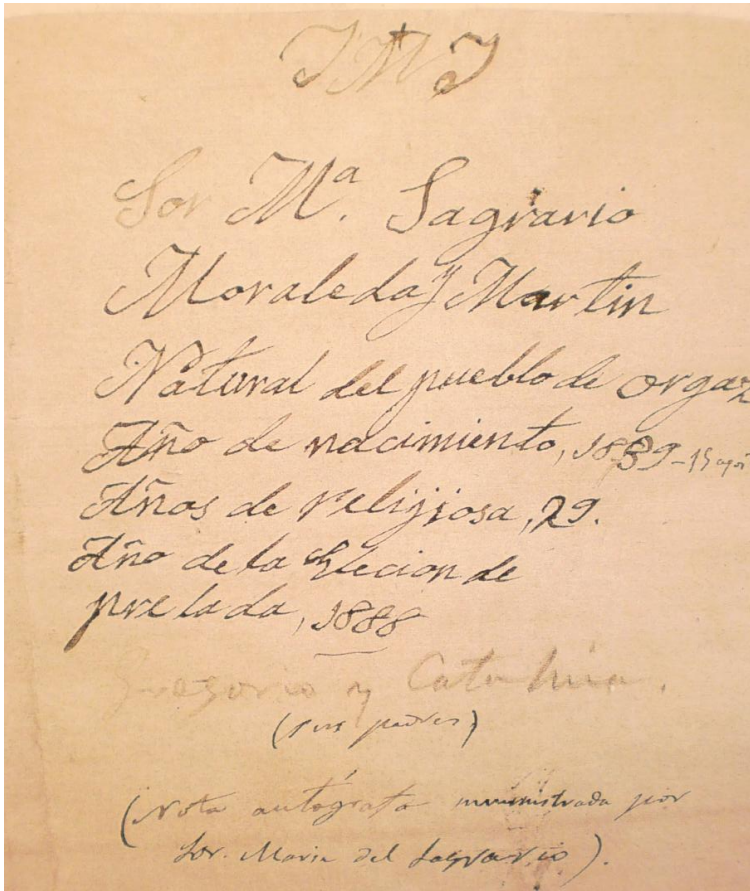 JMJ
Sor Mª. Sagrario
Moraleda y Martin
Natural del pueblo de orgaz
Año de nacimiento, 1839-15 ago
Años de religiosa, 29.
Año de la Elecion de
prelada, 1888
Gregorio y Catalina.
(sus padres)
(Nota autógrafa suministrada por
Sor. Maria del Sagrario).